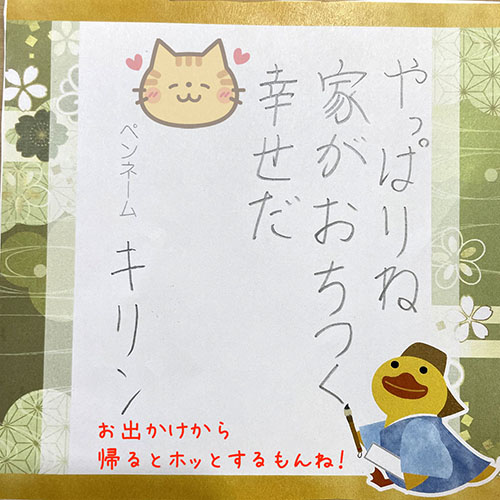 やっぱりね
家がおちつく
幸せだ
ペンネーム キリン
お出かけから
帰るとホッとするもんね!